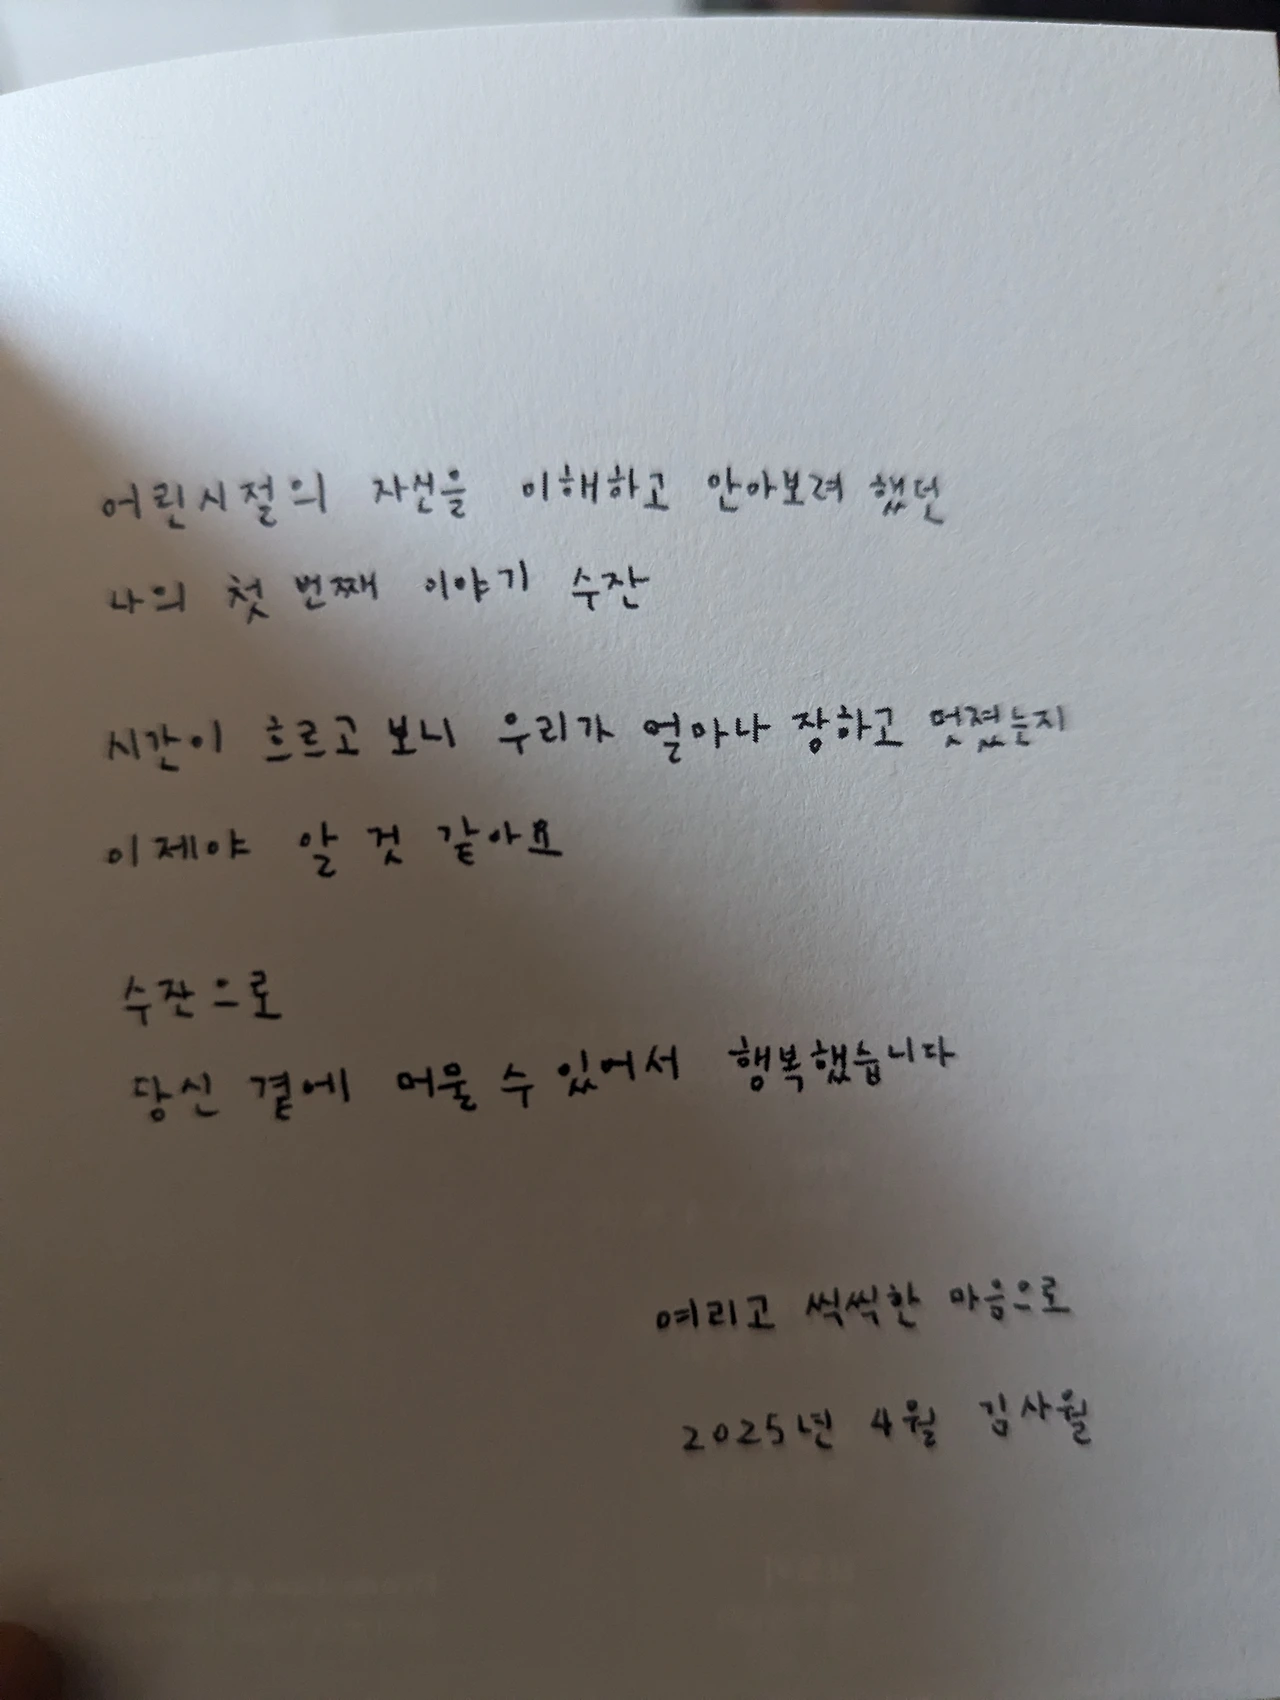 어린시절의 자신을 이해하고 안아보려 했던
나의 첫 번째 이야기 수잔
시간이 흐르고 보니 우리가 얼마나 장하고 멋졌는지
이제야 알 것 같아요
수잔으로
당신 곁에 머물 수 있어서 행복했습니다
여리고 씩씩한 마음으로
2025년 4월 김사월